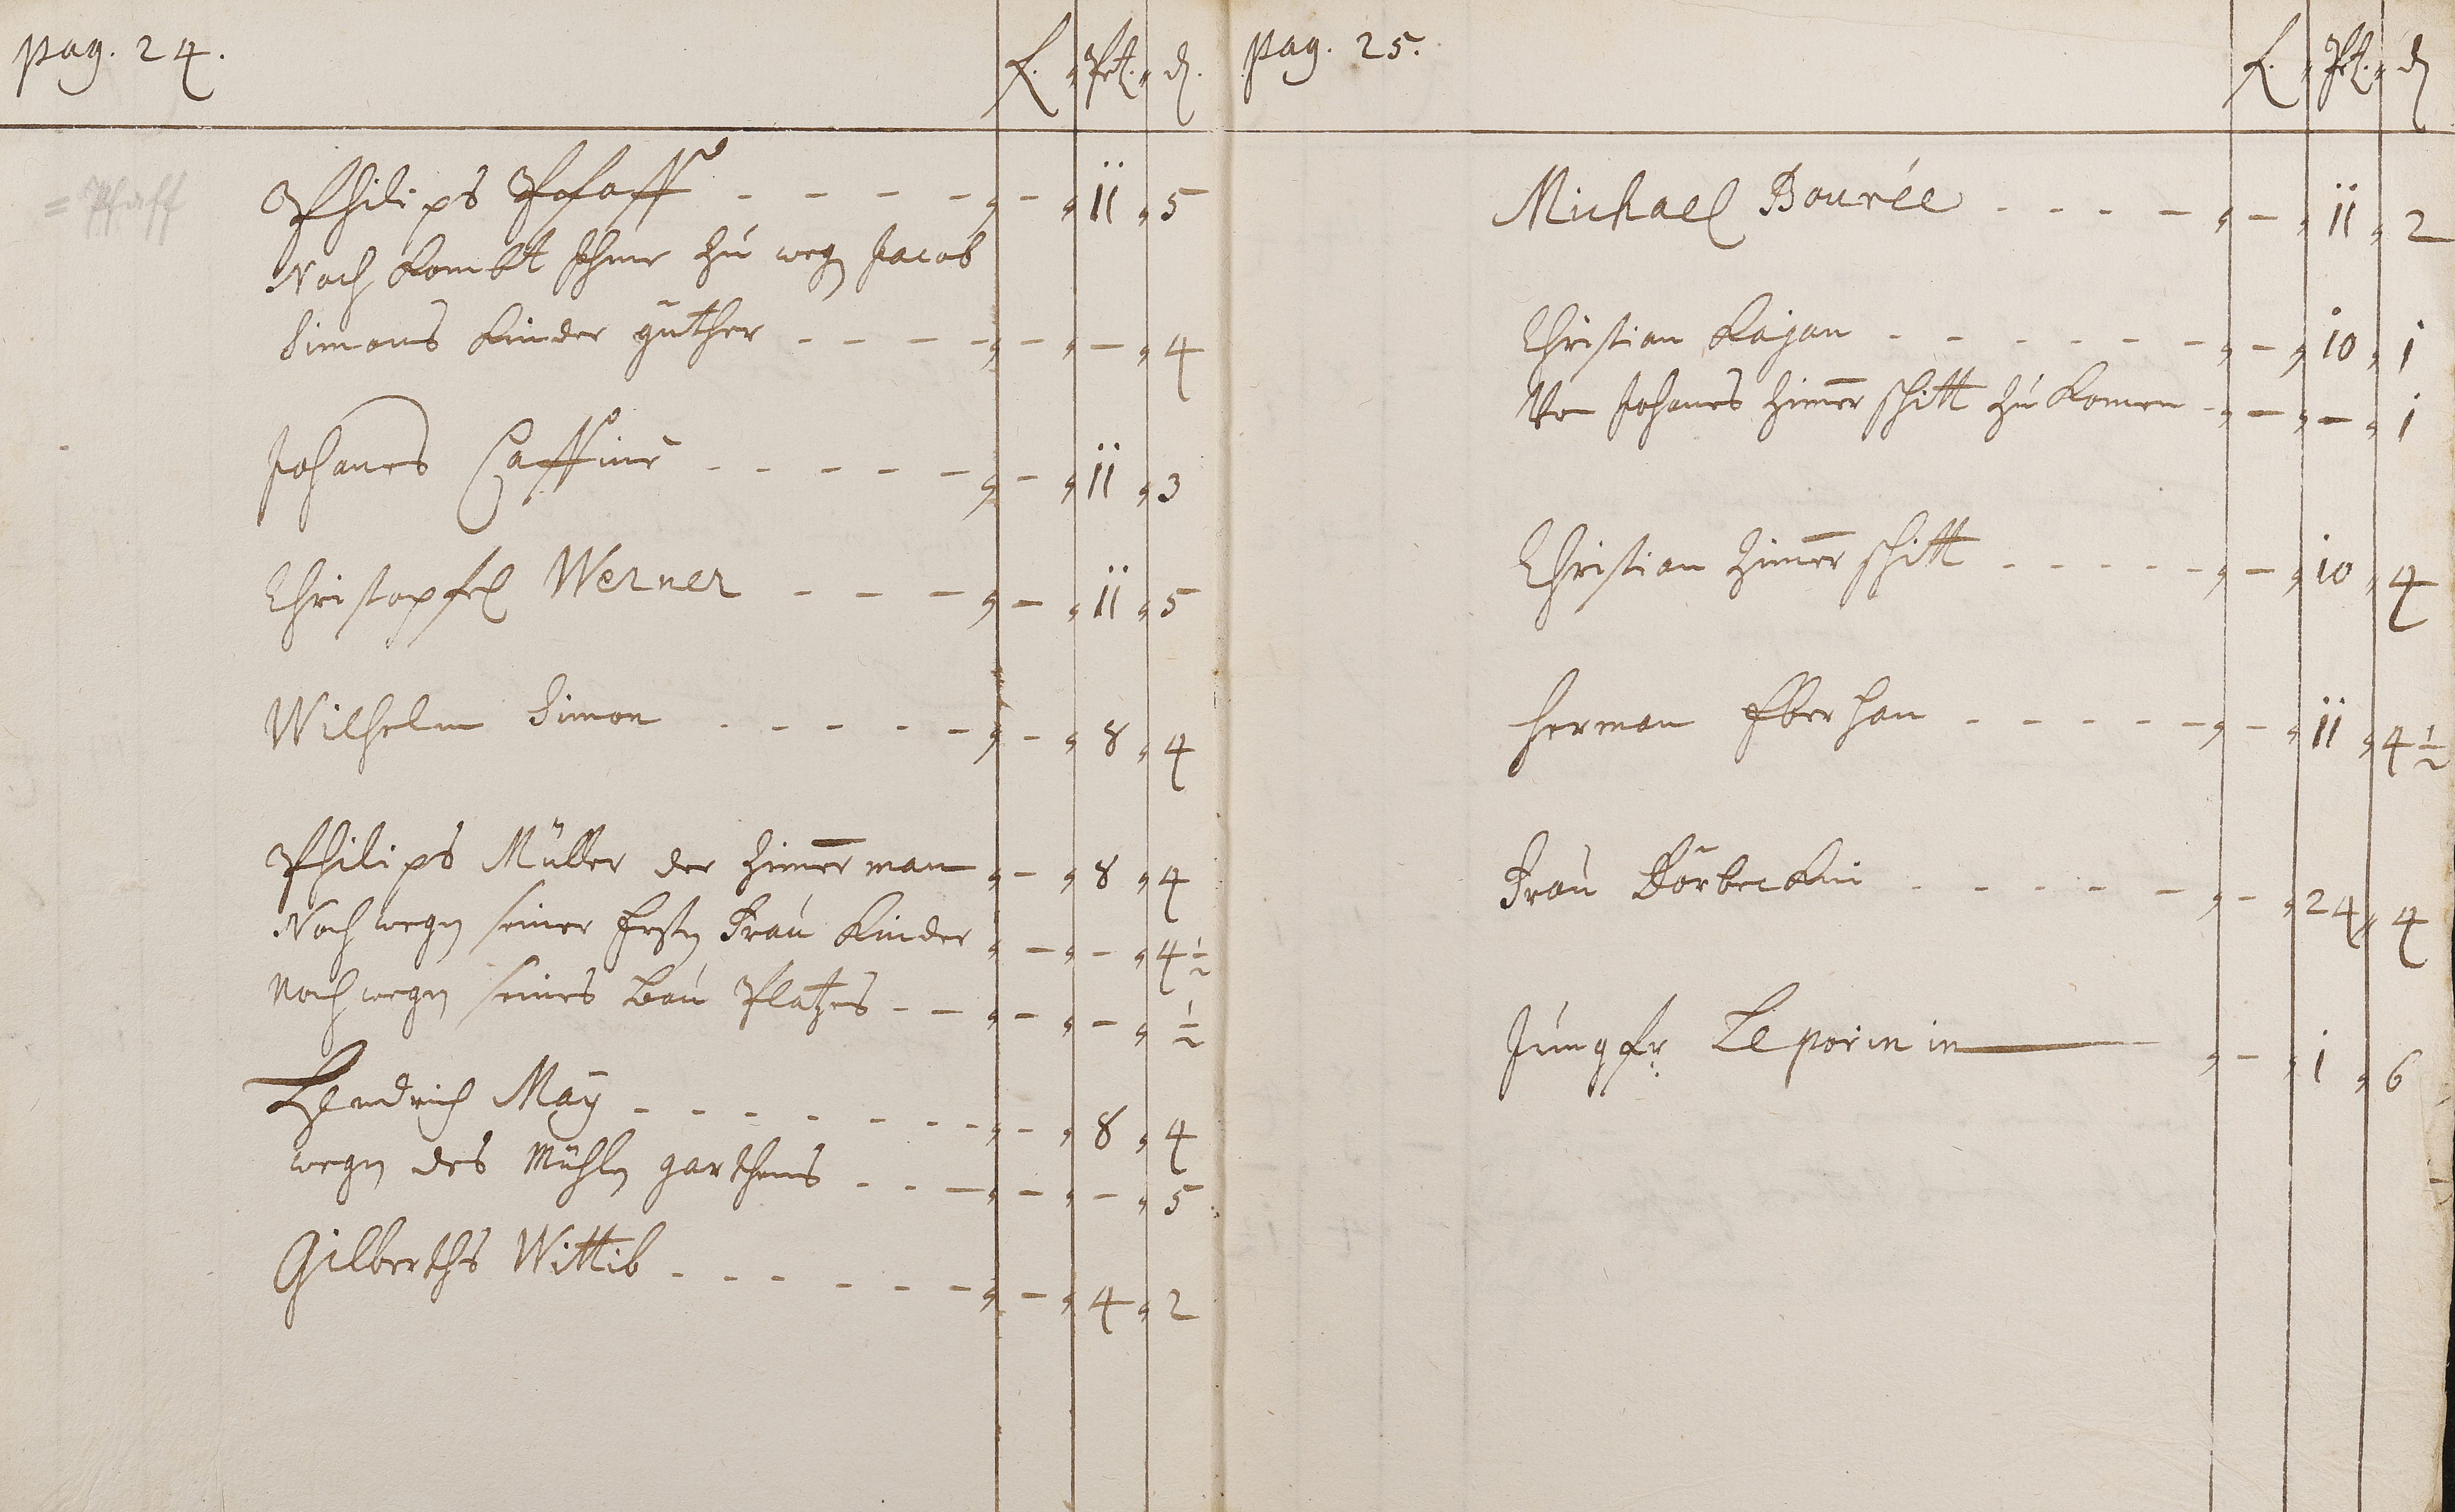 pag. 24.
f. Pet. d.
= Pfaff
Philips Pfaff - - - - „ - „ 11 „ 5
Noch Kombt Ihme zu wegen Jacob
Simons Kinder güther - - - - „ - „ - „ 4
Johanes Caffine - - - - - „ - „ 11 „ 3
Christopfel Werner - - - „ - „ 11 „ 5
Wilhelm Simon - - - - - „ - „ 8 „ 4
Philips Müller der Zimerman „ - „ 8 „ 4
Noch wegen seiner Ersten Frau Kinder „ - „ - „ 4 ½
Noch wegen seines Bau Platzes - - „ - „ - „ ½
Hendrich Maÿ - - - - - - „ - „ 8 „ 4
wegen des Mühlen garthens - - - „ - „ - „ 5
Gilberths Wittib - - - - - - „ - „ 4 „ 2
pag. 25.
f. Pet. d
Michael Bourée - - - - „ - „ 11 „ 2
Christian Kajan - - - - - - „ - „ 10 „ 1
Von Johanes Zimerschitt zu Komen - „ - „ - „ 1
Christian Zimerschitt - - - - - „ - „ 10 „ 4
Herman Eberhan - - - - - „ - „ 11 „ 4 ½
Frau Dörbeckin - - - - - „ - „ 24 „ 4
Jungfr. Leporinin „ - „ 1 „ 6